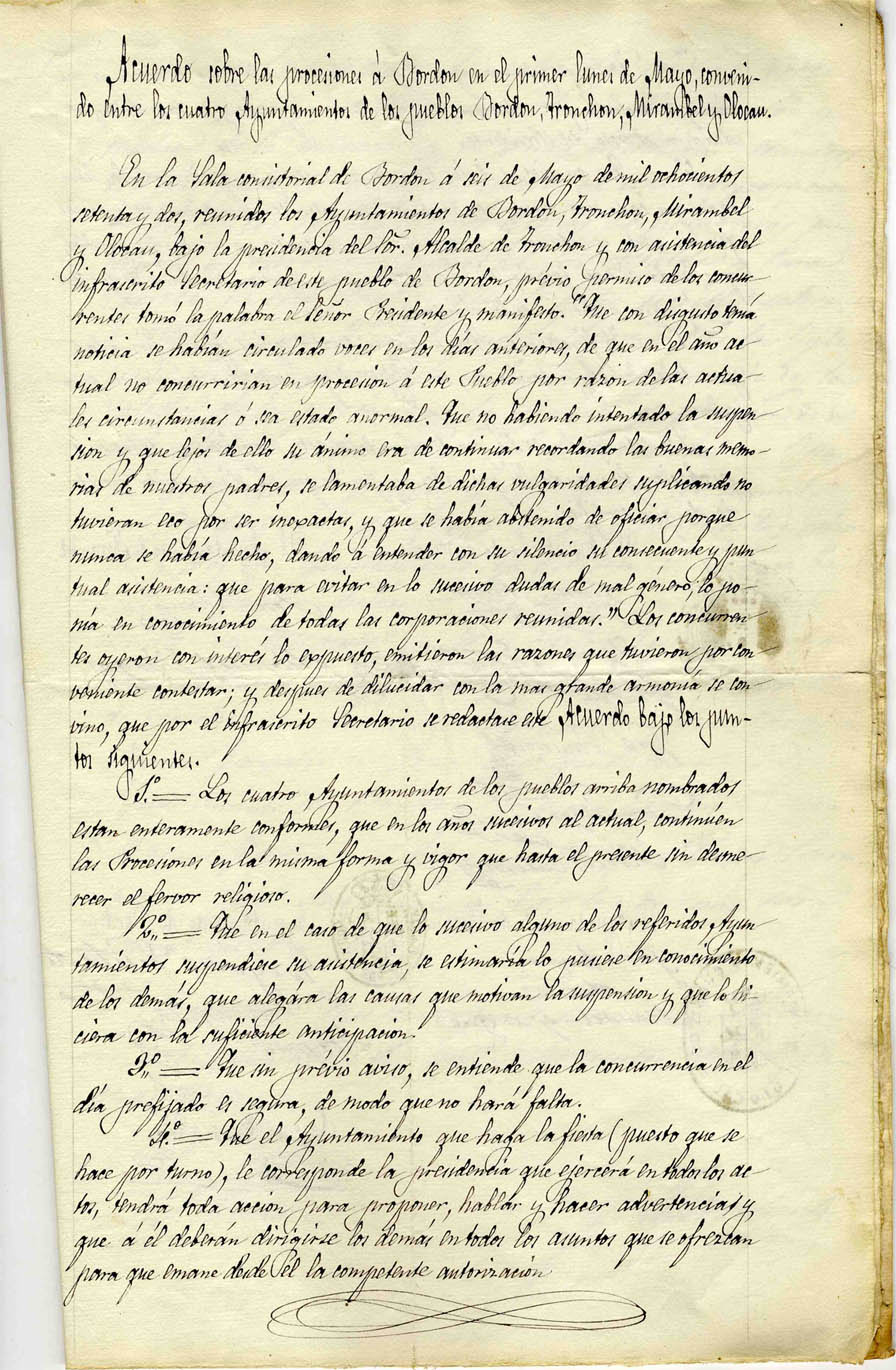 Acuerdo sobre las procesiones á Bordon en el primer lunes de Mayo, conveni-
do entre los cuatro Ayuntamientos de los pueblos Bordon, Tronchon, Mirambel y Olocau.
En la Sala consistorial de Bordon á seis de Mayo de mil ochocientos
setenta y dos, reunidos los Ayuntamientos de Bordon, Tronchon, Mirambel
y Olocau, bajo la presidencia del Sor. Alcalde de Tronchon y con asistencia del
infrascrito Secretario de este pueblo de Bordon, prévio permiso de los concur-
rentes tomó la palabra el Señor Presidente y manifesto. "Que con disgusto tenía
noticia se habían circulado voces en los días anteriores, de que en el año ac-
tual no concurririan en procesión á este Pueblo por razon de las actua-
les circunstancias ó sea estado anormal. Que no habiendo intentado la suspen-
sion y que lejos de ello su ánimo era de continuar recordando las buenas memo-
rias de nuestros padres, se lamentaba de dichas vulgaridades suplicando no
tuvieran eco por ser inexactas, y que se había abstenido de oficiar porque
nunca se había hecho, dando á entender con su silencio su consecuente y pun
tual asistencia: que para evitar en lo sucesivo dudas de mal género, lo po-
nía en conocimiento de todas las corporaciones reunidas." Los concurren
tes oyeron con interés lo expuesto, emitieron las razones que tuvieron por con
veniente contestar; y despues de dilucidar con la mas grande armonía se con
vino, que por el infrascrito Secretario se redactase este Acuerdo bajo los pun-
tos siguientes.
1.º = Los cuatro Ayuntamientos de los pueblos arriba nombrados
estan enteramente conformes, que en los años sucesivos al actual, continúen
las Procesiones en la misma forma y vigor que hasta el presente sin desme-
recer el fervor religioso.
2.º = Que en el caso de que lo sucesivo alguno de los referidos Ayun
tamientos suspendiese su asistencia, se estimaría lo pusiese en conocimiento
de los demás, que alegára las causas que motivan la suspension y que lo hi-
ciera con la suficiente anticipacion.
3.º = Que sin prévio aviso, se entiende que la concurrencia en el
día prefijado es segura, de modo que no hará falta.
4.º = Que el Ayuntamiento que haga la fiesta (puesto que se
hace por turno), le corresponde la presidencia que ejercerá en todos los ac
tos, tendrá toda accion para proponer, hablar y hacer advertencias y
que á él deberán dirigirse los demás en todos los asuntos que se ofrezcan
para que emane desde él la competente autorización